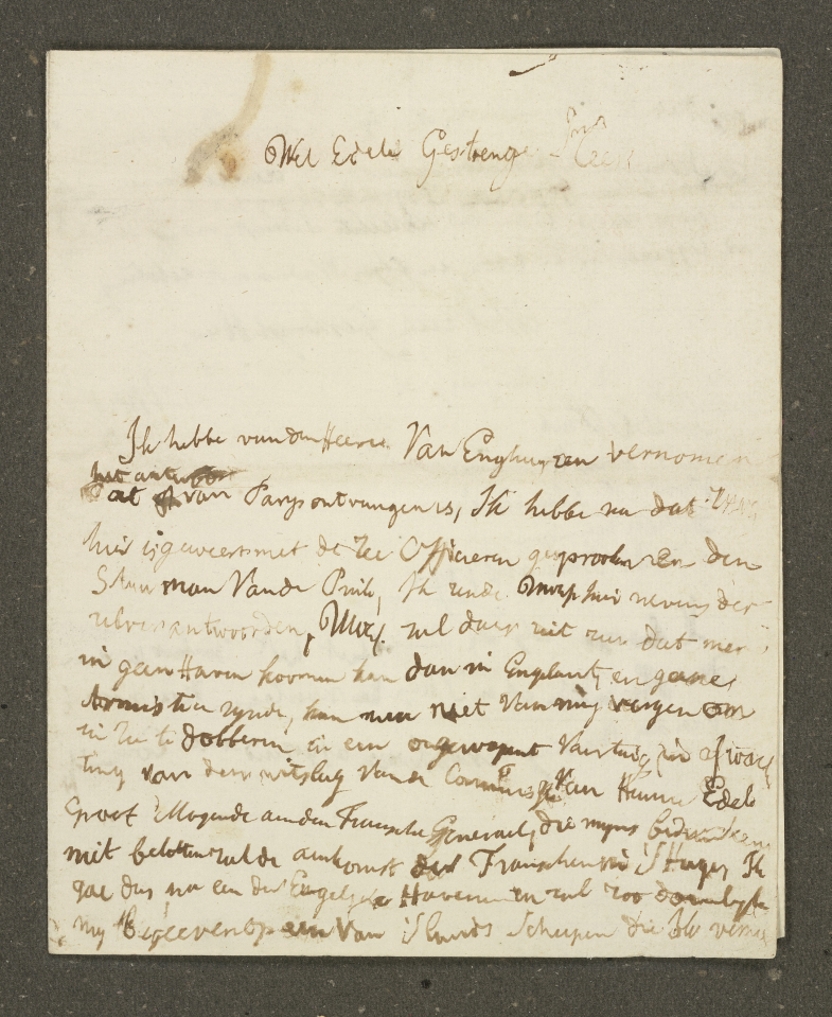 Wel Edele Gestrenge Heer
Ik hebbe van den Heere Van Enghuyzen vernomen
het antwoord
dat van Parys ontvangen is, Ik hebbe na dat
hier is geweest met de Zee Officieren gesprooken en den
Stuurman Vande Pink, Ik zende UwEg hier nevens der
zelver antwoorden, UWEg. zal daar uit zien dat men
in geen Haven koomen kan dan in Engelant, en geene
Armistitie zynde, kan men niet van my vergen om
in Zee te dobberen in een ongewapent Vaartuig, in afwach
ting van den uitslag Vande Commissie Van Hunne Edele
Groot Mogende aan den Fransche Generael, die myns bedunkens
niet beletten zal de aankomst der Franschen in 'S Hage, Ik
gae dus na een der Engelsche Havenen en zal zoo doenlyk
my begeeven op een Van 'S Lands Scheepen die